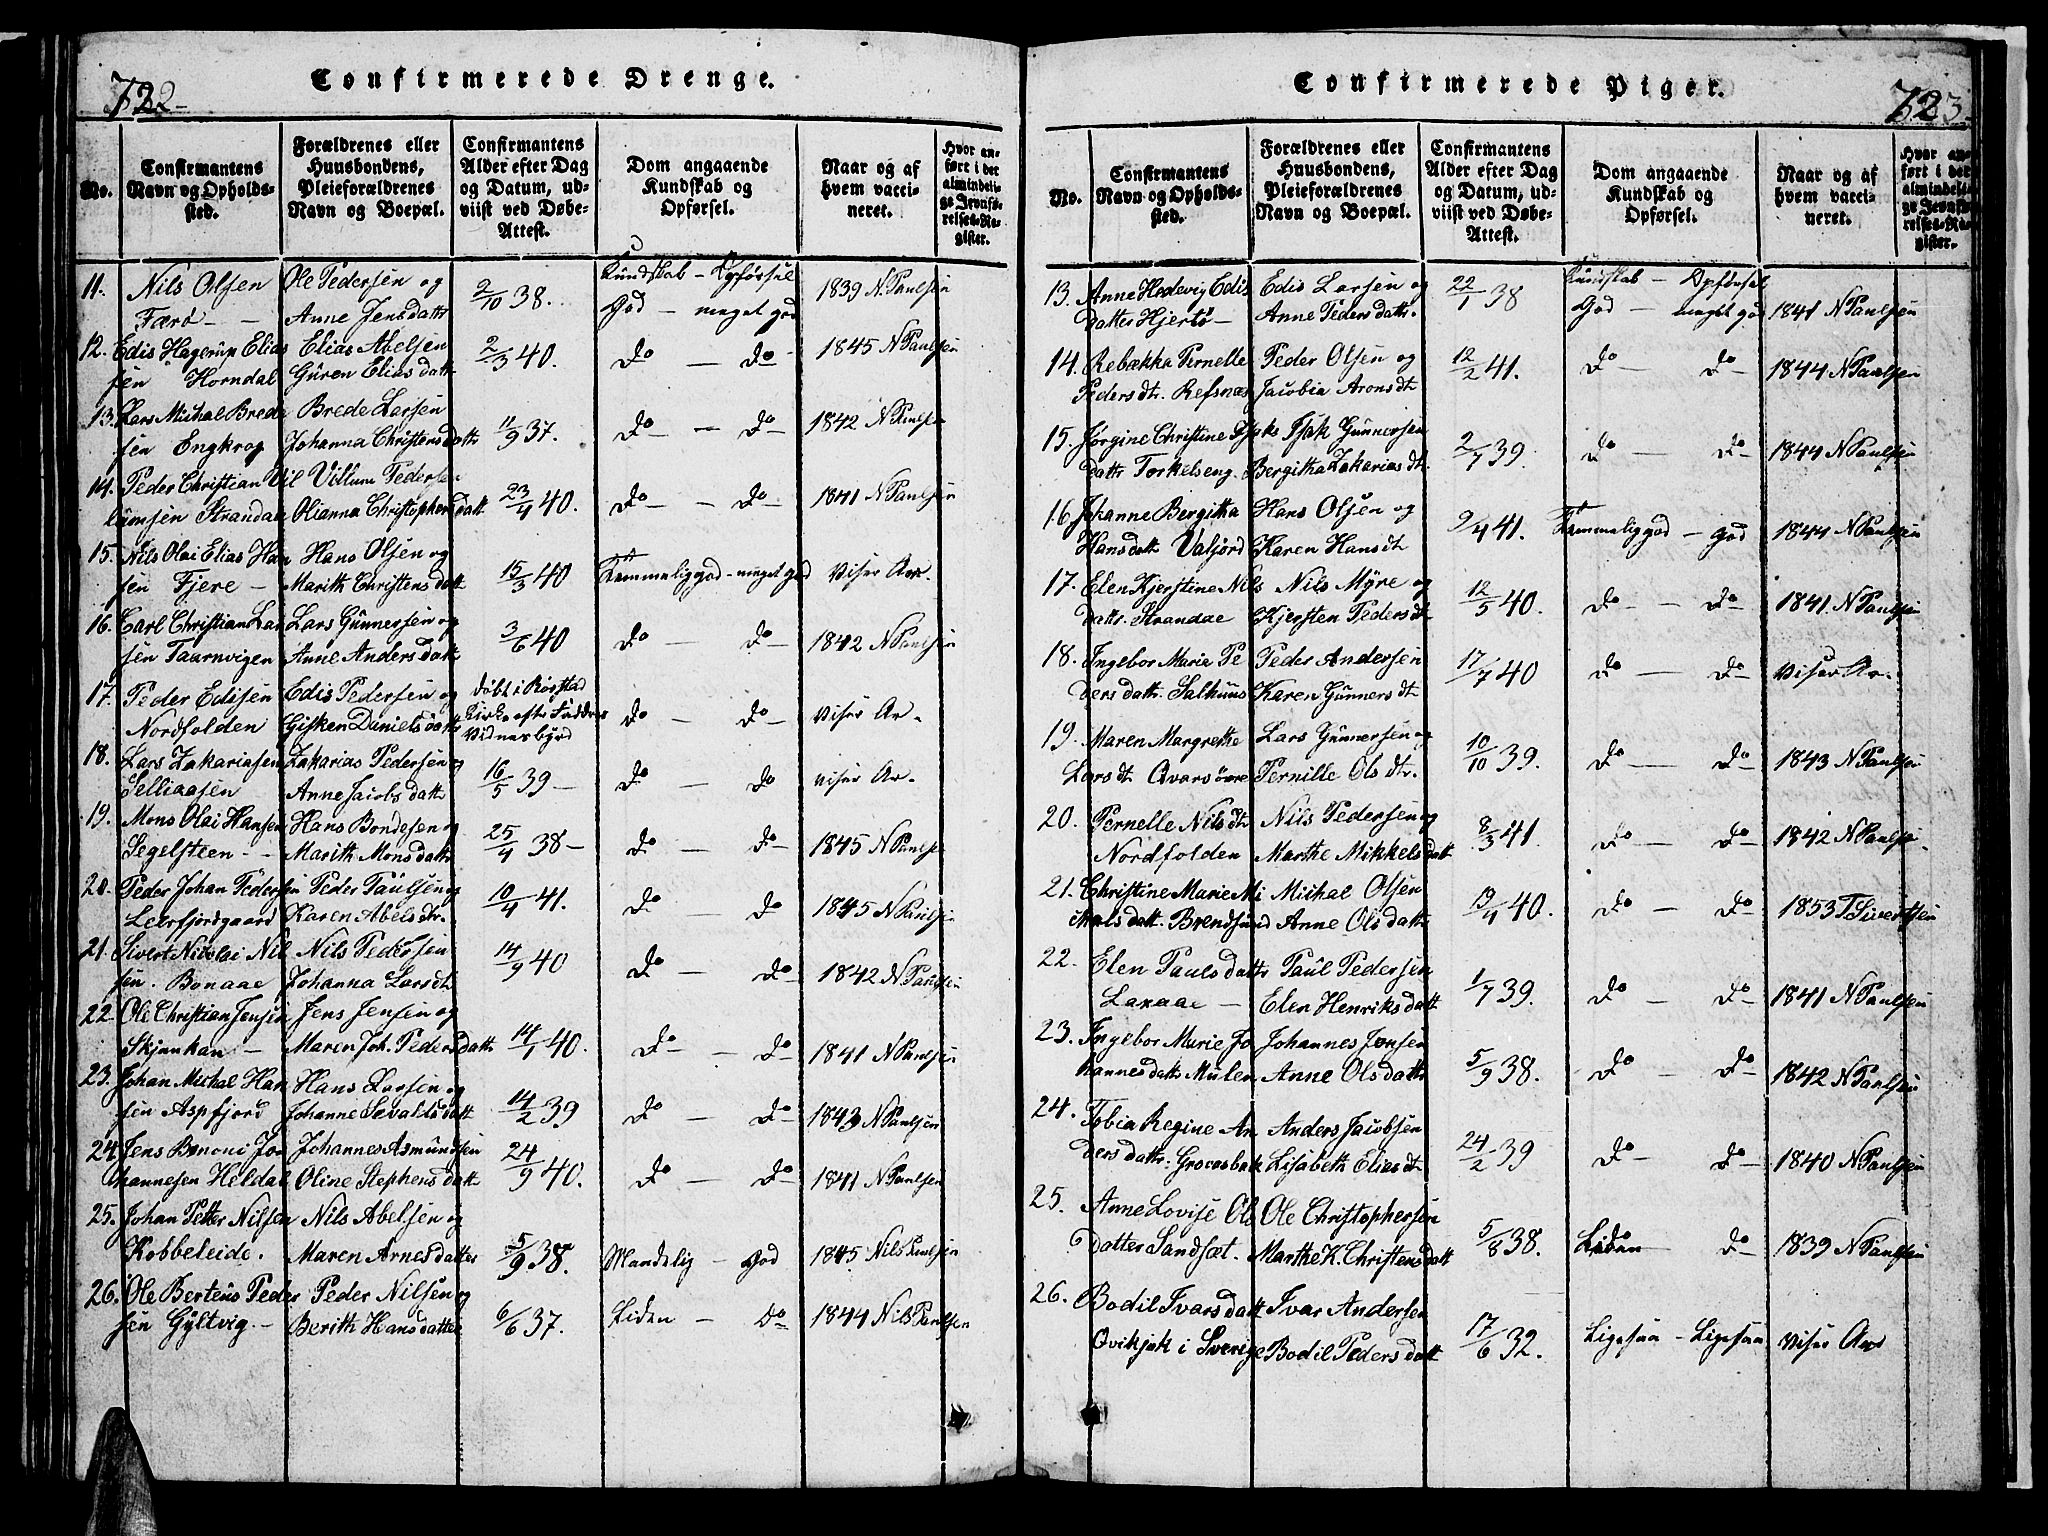 722
Confirmerede Drenge.
No.
Confirmantens Navn og Opholdssted.
Forældrenes eller Huusbondens, Pleieforældrenes Navn og Boepæl.
Confirmantens Alder efter Dag og Datum, udviist ved Døbe-Attest.
Dom angaaende Kundskab og Opførsel.
Naar og af hvem vaccineret.
Hvor anført i det almindelige Jevnførelses-Register.
11. Nils Olsen Ole Pedersen og 2/10 38. Kundskab - Opførsel 1839 N. Paulsen
Færø - - Anne Jensdattr God - meget god
12. Edis Hagerup Elias Elias Abelsen 2/3 40. do - do 1845 N Paulsen
sen Horndal Guren Eliasdatt
13. Lars Michal Brede Brede Larsen 11/9 37. do - do 1842 N Paulsen
sen Engkrog Johanna Christensdattr
14. Peder Christian Vil Villum Pedersen 23/4 40. do - do 1841 N Paulsen
lumsen Strandaa Olianna Christophersdatt
15. Nils Olai Elias Han Hans Olsen og 15/3 40 Temmelig god - meget god Viser Ar.
sen Fjere - Marith Christensdatt
16. Carl Christian Lar Lars Gunnersen og 3/6 40 do - do 1842 N Paulsen
sen Taarnvigen Anne Andersdatt
17. Peder Edisen Edis Pedersen og døbt i Rørstad do - do Viser Ar -
Nordfolden Gisken Danielsdattr Kirke efter Fadders
Vidnesbyrd
18. Lars Zakariasen Zakarias Pedersen og 16/5 39 - do - do viser Ar -
Selliaasen Anne Jacobsdatt
19. Mons Olai Hansen Hans Bondesen og 25/4 38 - do - do 1845 N Paulse
Segelsteen - - Marith Monsdattr
20. Peder Johan Pedersen Peder Paulsen og 10/4 41. do - do 1845 N Paulsen
Leirfjordgaard Karen Abelsdtr.
21. Sivert Nicolai Nil Nils Pedersen 14/9 40 do - do 1842 N. Paulsen
sen. Bonaae Johanna Larsdt
22. Ole Christian Jensen Jens Jensen og 14/1 40. do - do 1841 N Paulsen
Skjankan - Maren Joh. Pedersdattr
23. Johan Michal Han Hans Larsen og 14/2 39 do - do 1843 N Paulsen
sen Aspfjord Johanne Sevaldsdatt
24. Jens Benoni Jo Johannes Asmundsen 24/9 40. do - do 1841 N Paulsen
hannesen Heldal Oline Stephensdatt
25. Johan Petter Nilsen Nils Abelsen og 5/9 38. Maadelig - God 1845 Nils Paulsen
Kobbeleide. Maren Arnesdatter
26. Ole Berteus Peder Peder Nilsen og 6/6 37. Liden - do 1844 Nils Paulsen
sen Gyltvig. - Berith Hansdatter
723
Confirmerede Piger.
No.
Confirmantens Navn og Opholdssted.
Forældrenes eller Huusbondens, Pleieforældrenes Navn og Boepæl.
Confirmantens Alder efter Dag og Datum, udviist ved Døbe-Attest.
Dom angaaende Kundskab og Opførsel.
Naar og af hvem vaccineret.
Hvor anført i det almindelige Jevnførelses-Register.
13. Anne Hedevig Edis Edis Larsen og 22/1 38 Kundskab - Opførsel
datter Hjertø - Anne Pedersdattr. God - meget god 1841 N Paulsen
14. Rebækka Pernelle Peder Olsen og 12/2 41. do - do 1844 N Paulsen
Pedersdt. Refsnæs Jacobia Aronsdt
15. Jørgine Christine Isaks Isak Gunnersen 2/7 39. do - do 1844 N Paulsen
dattr Torkelseng. Bergitha Zakariasdt.
16. Johanne Bergitha Hans Olsen og 9/4 41. Temmelig god - god 1844 N Paulsen
Hansdatt Valjord Karen Hansdt
17. Elen Kjerstine Nils Nils Myre og 12/5 40. do - do 1841. N Paulsen
dattr. Strandae Kjersten Pedersdt
18. Ingebor Marie Pe Peder Andersen 17/7 40 do - do Viser Ar -
dersdattr. Salhuus Karen Gunnersdt
19. Maren Margrethe Lars Gunnersen og 10/10 39. do - do 1843 N Paulsen
Larsdt Qvarsøre Pernille Olsdtr.
20. Pernelle Nilsdt Nils Pedersen og 8/3 41 do - do 1842 N Paulse
Nordfolden Marthe Mikkelsdatt
21. Christine Marie Mi Michal Olsen 19/4 40. do - do 1853 T Sivertsen
chalsdatt. Brendsund Anne Olsdattr
22. Elen Paulsdattr Paul Pedersen 1/7 39. do - do 1841 N Paulsen
Laxaae - Elen Henriksdatt
23. Ingebor Marie Jo Johannes Jonsen 5/9 38. do do 1842 N Paulsen
hannesdattr Mulen Anne Olsdattr
24. Tobia Regine An Anders Jacobsen 24/2 39 do - do 1840 N Paulsen
dersdattr. Groensbak Lisabeth Eliasdt
25. Anne Lovise Ols Ole Christophersen 5/8 38. Liden - do 1839 N Paulsen
datter Sandsæt. Marthe K. Christensdatt
26. Bodil Ivarsdatt Ivar Andersen 17/6 32. Ligesaa - Ligesaa viser Ar
Qvikjok i Sverige Bodil Pedersdatt